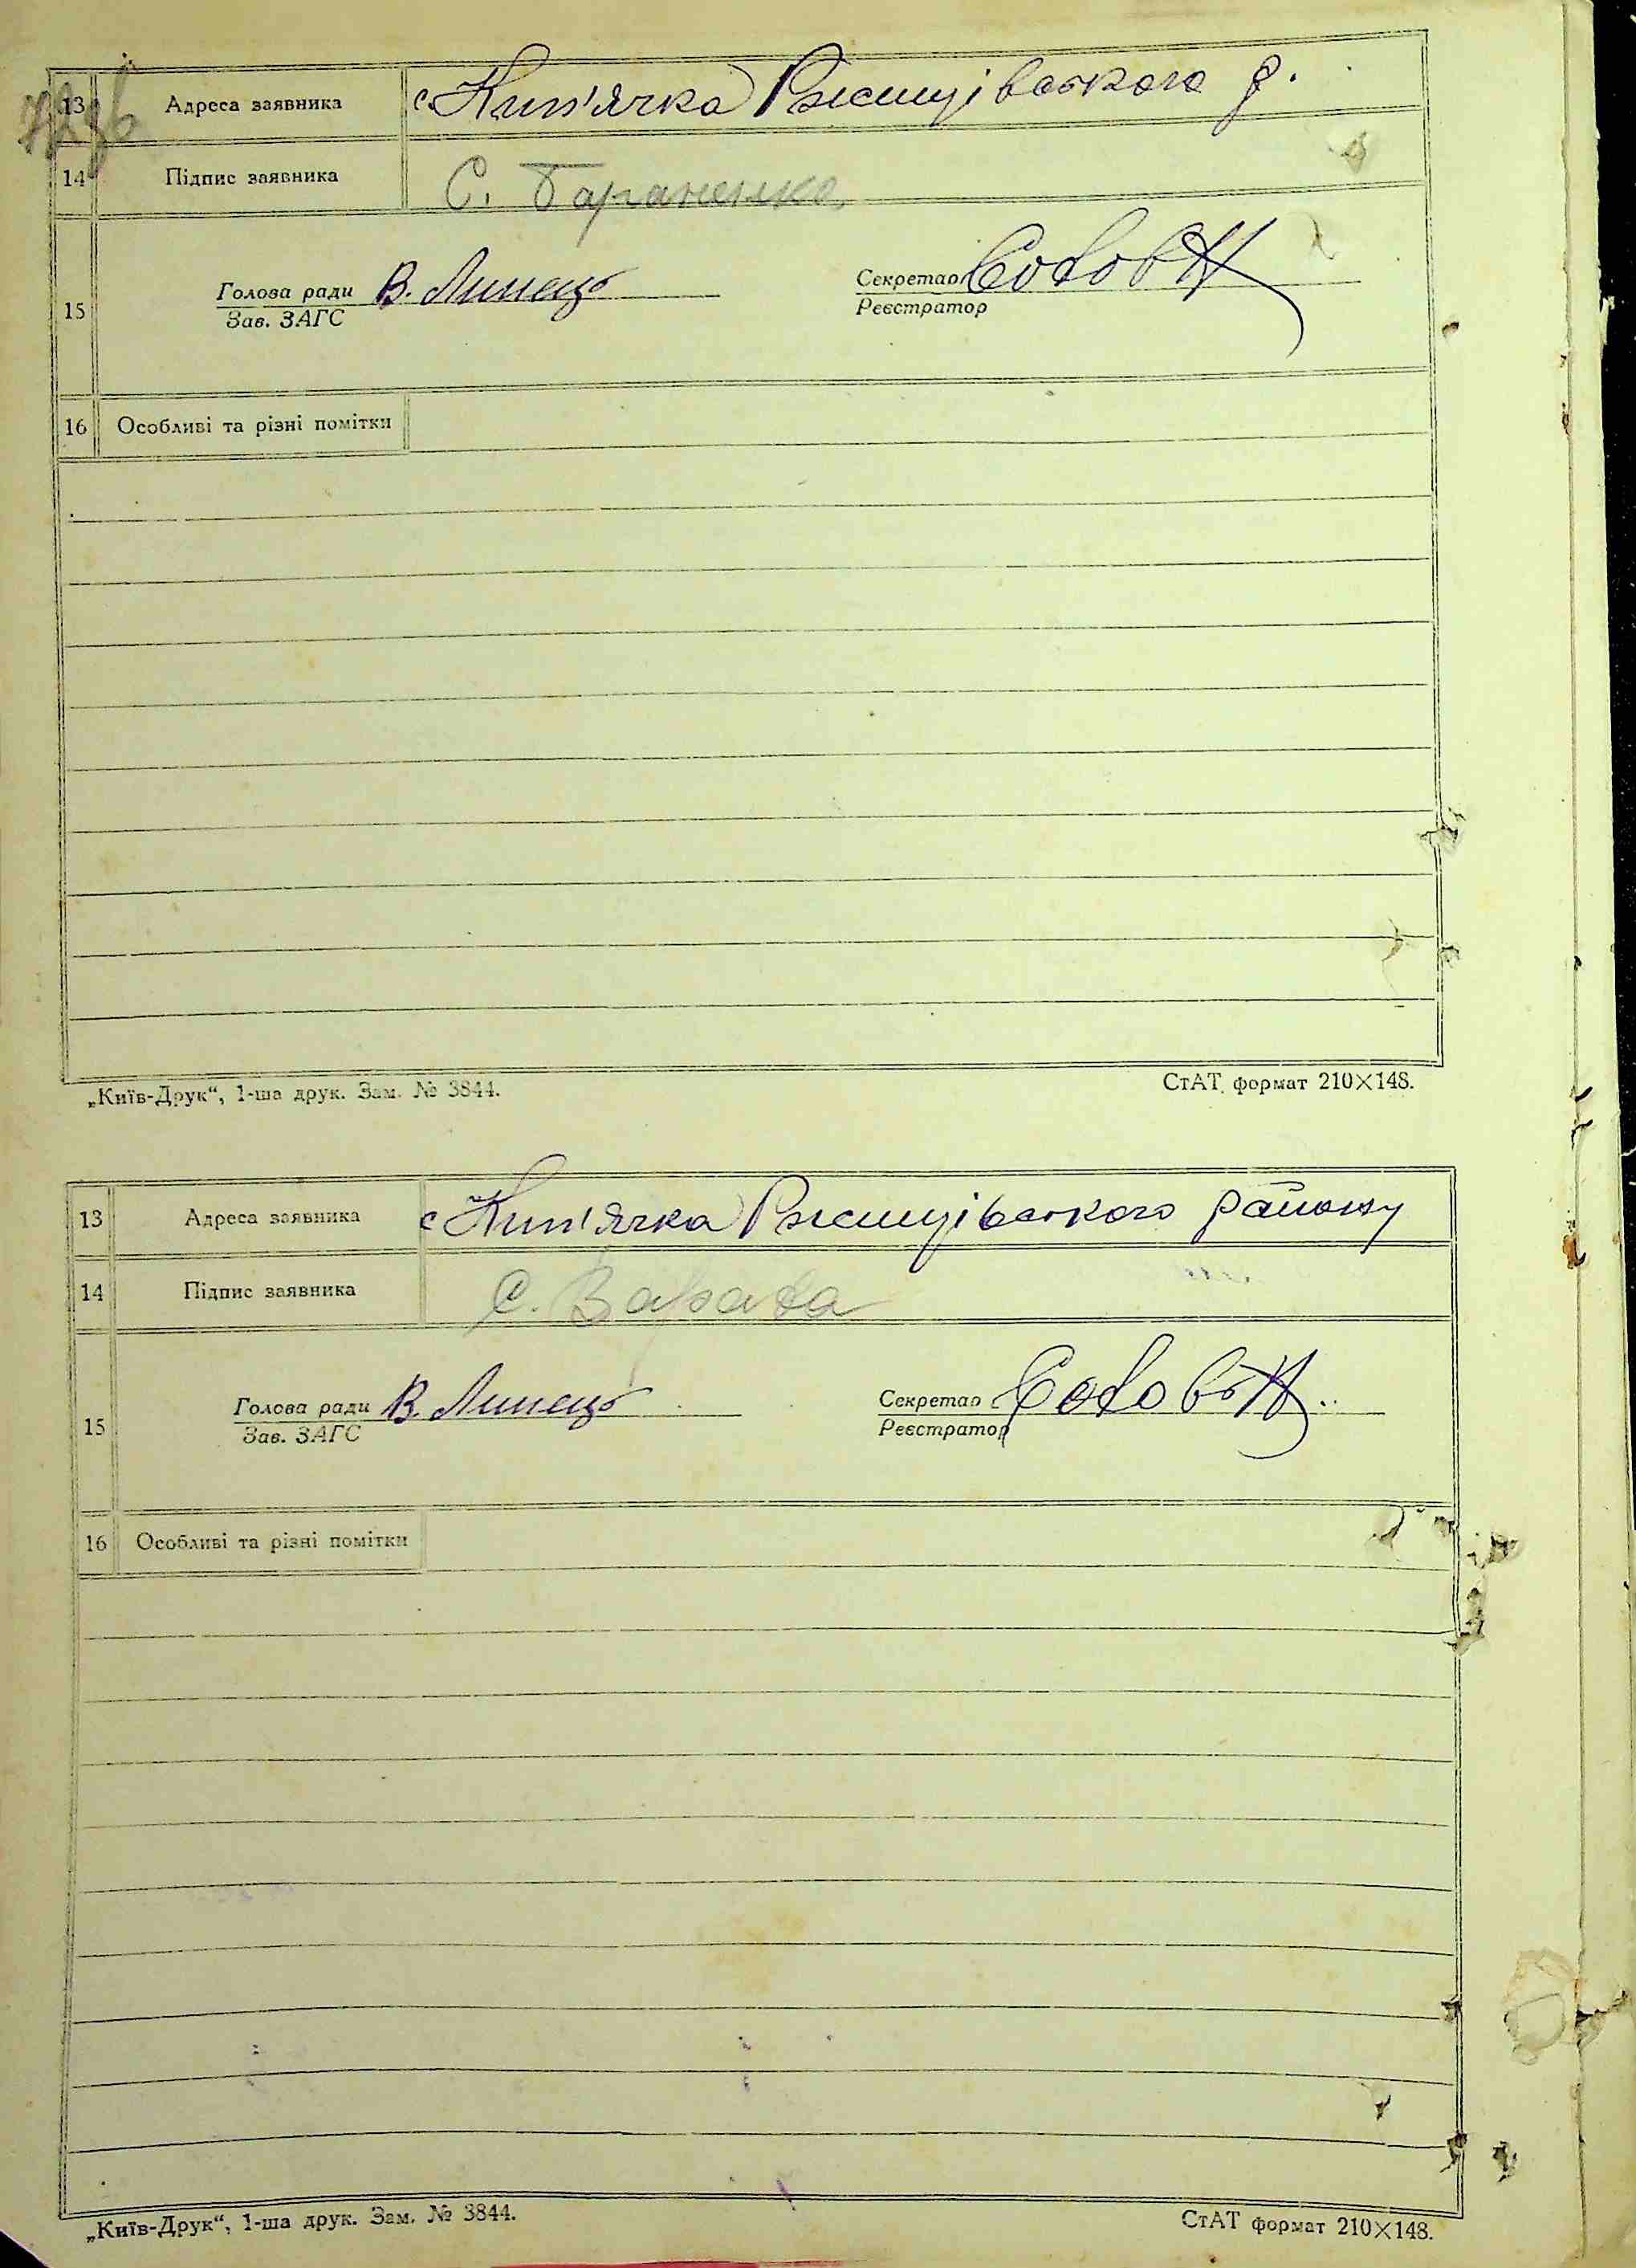 13 Адреса заявника с. Кип'ячка Ржищівського р.
14 Підпис заявника С. Бараненко
Голова ради В. Липець Секретар
15 Зав. ЗАГС Реєстратор
16 Особливі та різні помітки
„Київ-Друк“, 1-ша друк. Зам. № 3844. СтАТ формат 210×148.
13 Адреса заявника с Кип'ячка Ржищівського району
14 Підпис заявника С. Варава
Голова ради В. Липець Секретар
15 Зав. ЗАГС Реєстратор
16 Особливі та різні помітки
„Київ-Друк“, 1-ша друк. Зам. № 3844. СтАТ формат 210×148.